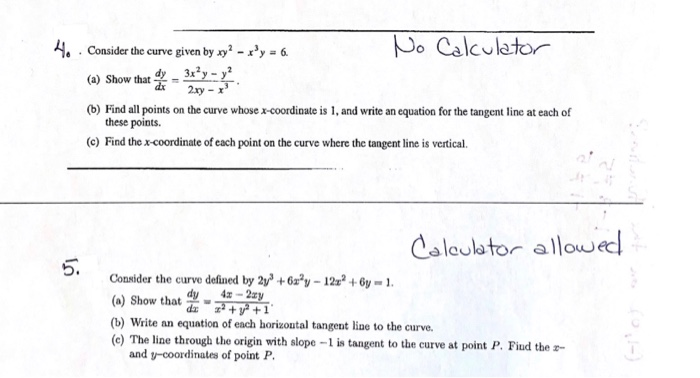 4. . Consider the curve given by xy² - x³y = 6. No Calculator
(a) Show that dy/dx = (3x²y - y²)/(2xy - x³).
(b) Find all points on the curve whose x-coordinate is 1, and write an equation for the tangent line at each of
these points.
(c) Find the x-coordinate of each point on the curve where the tangent line is vertical.
Calculator allowed
5.
Consider the curve defined by 2y³ + 6x²y - 12x² + 6y = 1.
(a) Show that dy/dx = (4x - 2xy)/(x² + y² + 1).
(b) Write an equation of each horizontal tangent line to the curve.
(c) The line through the origin with slope -1 is tangent to the curve at point P. Find the x-
and y-coordinates of point P.